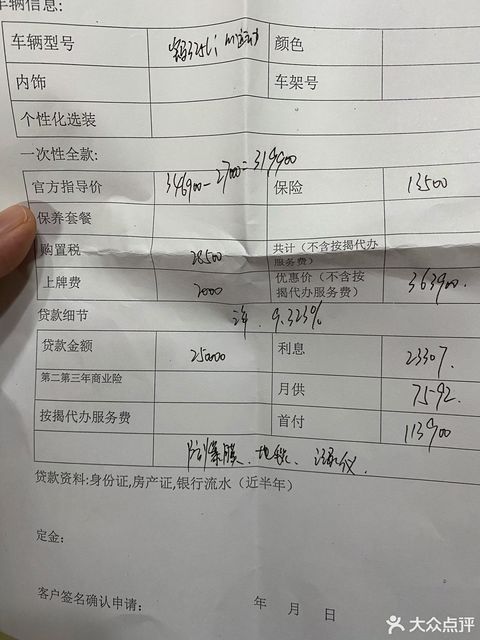 车辆信息
车辆型号 325Li M运动 颜色
内饰 车架号
个性化选装
一次性全款:
官方指导价 346900-27000=319900 保险 13500
保养套餐
购置税 28500 共计（不含按揭代办服务费）
上牌费 2000 优惠价（不含按揭代办服务费） 363900.
贷款细节 三年. 9.323%
贷款金额 250000 利息 23307.
第二第三年商业险 月供 7592.
按揭代办服务费 首付 113900
防爆膜、地毯、记录仪.
贷款资料:身份证,房产证,银行流水（近半年）
定金:
客户签名确认申请: 年 月 日
大众点评